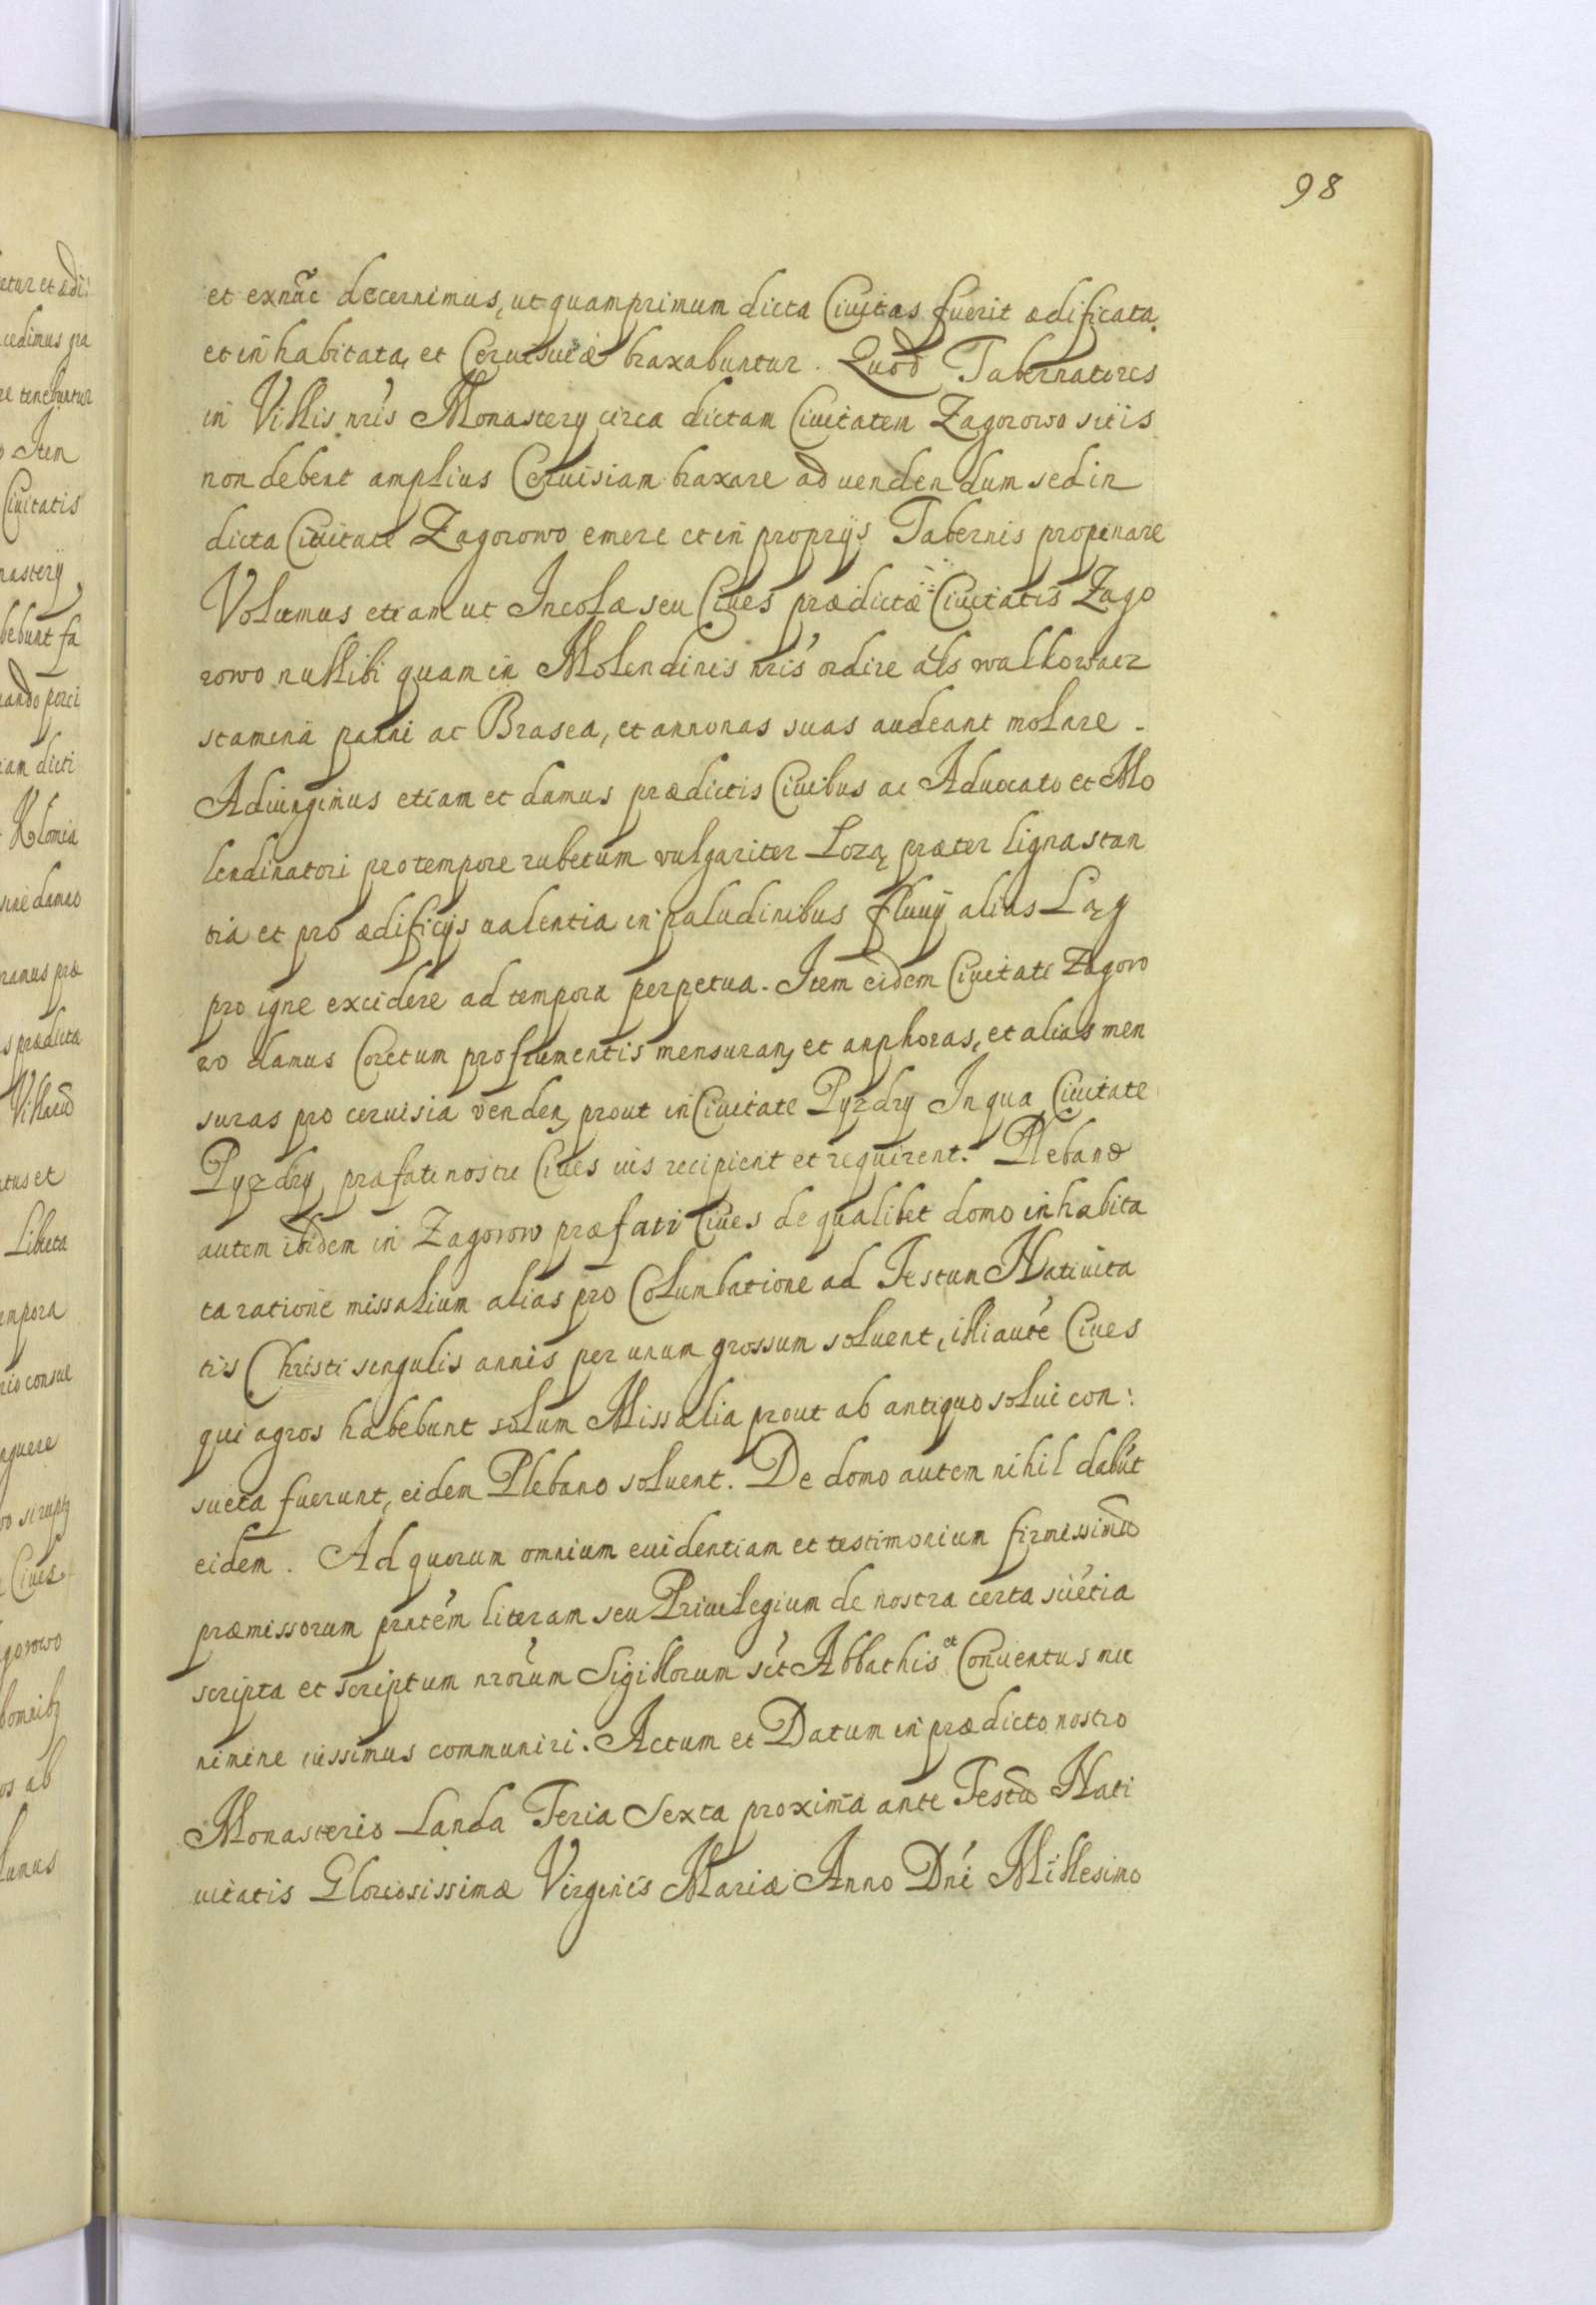 98
et exnūc decernimus, ut quamprimum dicta Ciuitas fuerit ædificata
et inhabitata, et Ceruisiæ braxabuntur. Quod Tabernatores
in Villis nrīs Monastery circa dictam Ciuitatem Zagorowo sitis
non debent amplius Ceruisiam braxare ad uendendum sed in
dicta Ciuitate Zagorowo emere et in proprijs Tabernis propinare
Volumus etiam ut Incolæ seu Ciues prædictæ Ciuitatis Zago
rowo nullibi quam in Molendinis nrīs ordire als walkowacz
stamina panni ac Brasea, et annonas suas audeant molare.
Adiungimus etiam et damus prædictis Ciuibus ac Aduocato et Mo
lendinatori pro tempore rubetum vulgariter Lozą præter ligna stan
tia et pro ædificijs ualentia in paludinibus fluuij alias Ląg
pro igne excidere ad tempora perpetua. Item eidem Ciuitati Zagoro
wo damus Coretum pro frumentis mensuran, et anphoras, et alias men
suras pro ceruisia venden, prout in Ciuitate Pyzdry In qua Ciuitate
Pyzdry præfati nostri Ciues ius recipient et requirent. Plebano
autem ibidem in Zagorow præfati Ciues de qualibet domo inhabita
ta ratione missalium alias pro Columbatione ad Festum Natiuita
tis Christi singulis annis per unum grossum soluent, illi autē Ciues
qui agros habebunt solum Missalia prout ab antiquo solui con:
sueta fuerunt, eidem Plebano soluent. De domo autem nihil dabūt
eidem. Ad quorum omnium euidentiam et testimonium firmissimū
præmissorum pntēm literam seu Priuilegium de nostra certa sciētia
scripta et scriptum nrorum Sigillorum sct Abbathis et Conuentus mu
nimine iussimus communiri. Actum et Datum in prædicto nostro
Monasterio Landa Feria Sexta proxima ante Festū Nati
uitatis Gloriosissimæ Virginis Mariæ Anno Dnī Millesimo